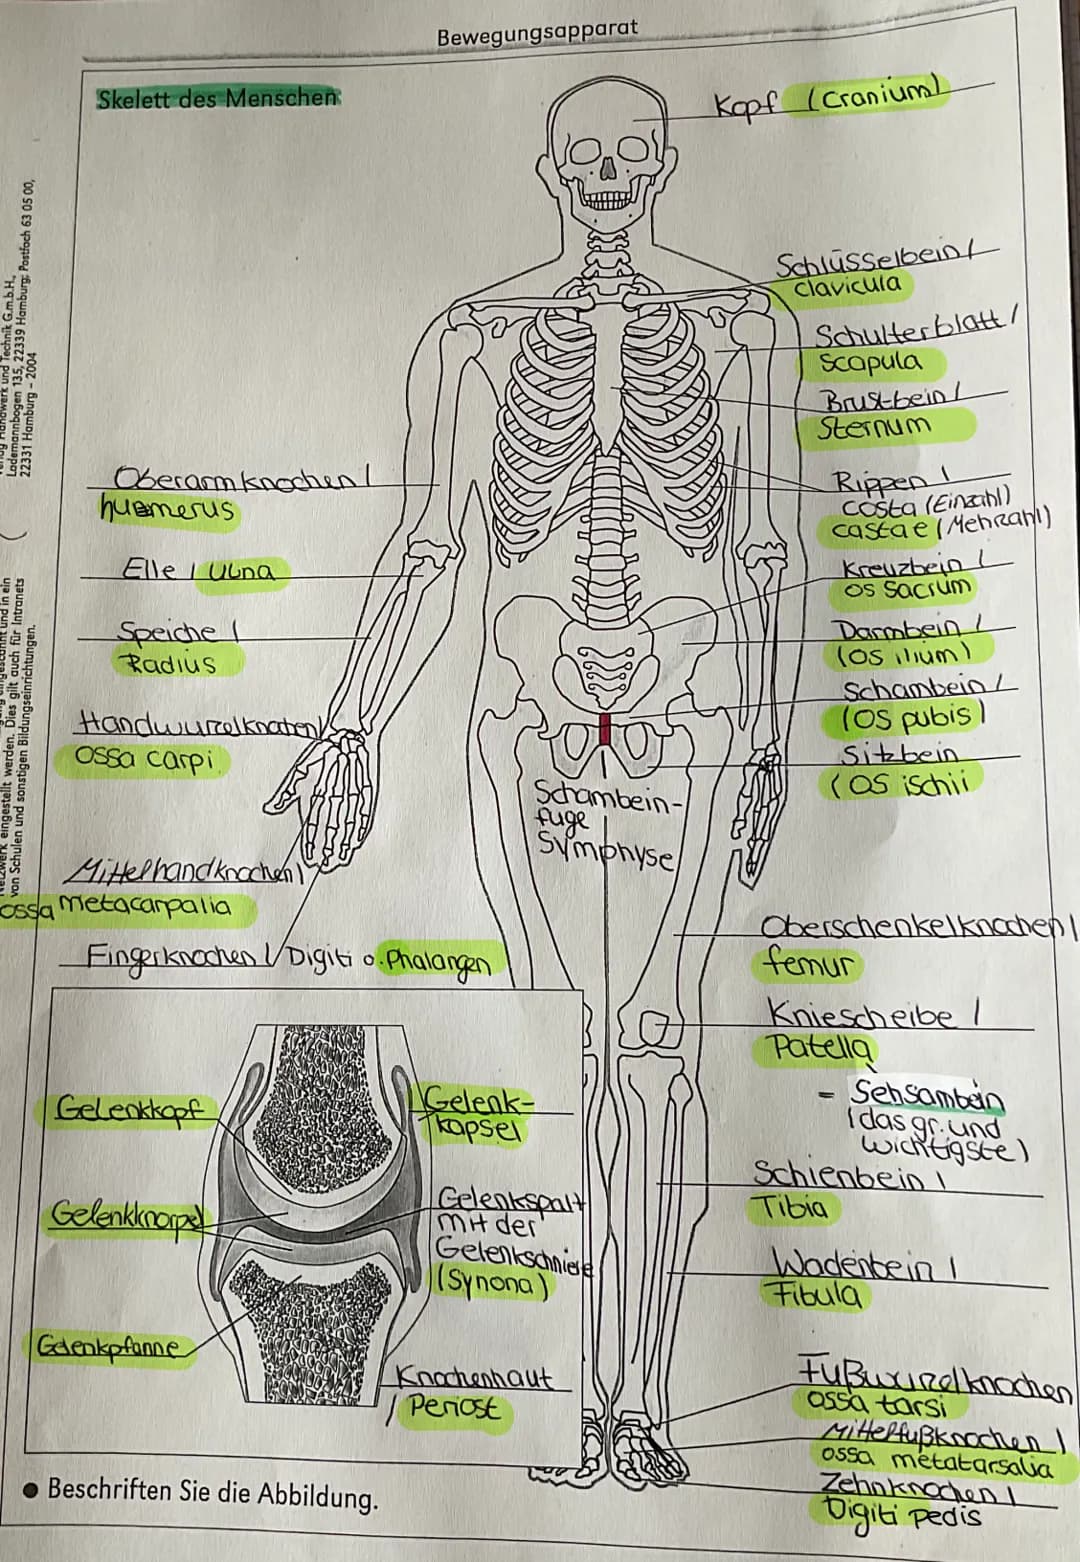 Bewegungsapparat
Skelett des Menschen
Kopf (Cranium)
Schlüsselbein /
clavicula
Schulterblatt /
Scapula
Brustbein /
Sternum
Rippen /
costa (Einzahl)
castae (Mehrzahl)
Kreuzbein /
os sacrum
Darmbein /
(os ilium)
Schambein /
(os pubis)
Sitzbein
(os ischii
Oberarmknochen /
humerus
Elle / Ulna
Speiche /
Radius
Handwurzelknochen /
ossa carpi
Mittelhandknochen /
ossa metacarpalia
Fingerknochen / Digiti o. Phalangen
Schambein-
fuge
Symphyse
Oberschenkelknochen /
femur
Kniescheibe /
Patella
= Sehsambein
(das gr. und
wichtigste)
Schienbein /
Tibia
Wadenbein /
Fibula
Fußwurzelknochen
ossa tarsi
Mittelfußknochen /
ossa metatarsalia
Zehnknochen /
Digiti pedis
Gelenkkopf
Gelenk-
kapsel
Gelenkknorpel
Gelenkspalt
mit der
Gelenkschmiere
(Synona)
Gelenkpfanne
Knochenhaut
/ Periost
Beschriften Sie die Abbildung.
Handwerk und Technik G.m.b.H.,
Lademannbogen 135, 22339 Hamburg; Postfach 63 05 00,
22331 Hamburg – 2004
eingescannt und in ein
Netzwerk eingestellt werden. Dies gilt auch für Intranets
von Schulen und sonstigen Bildungseinrichtungen.